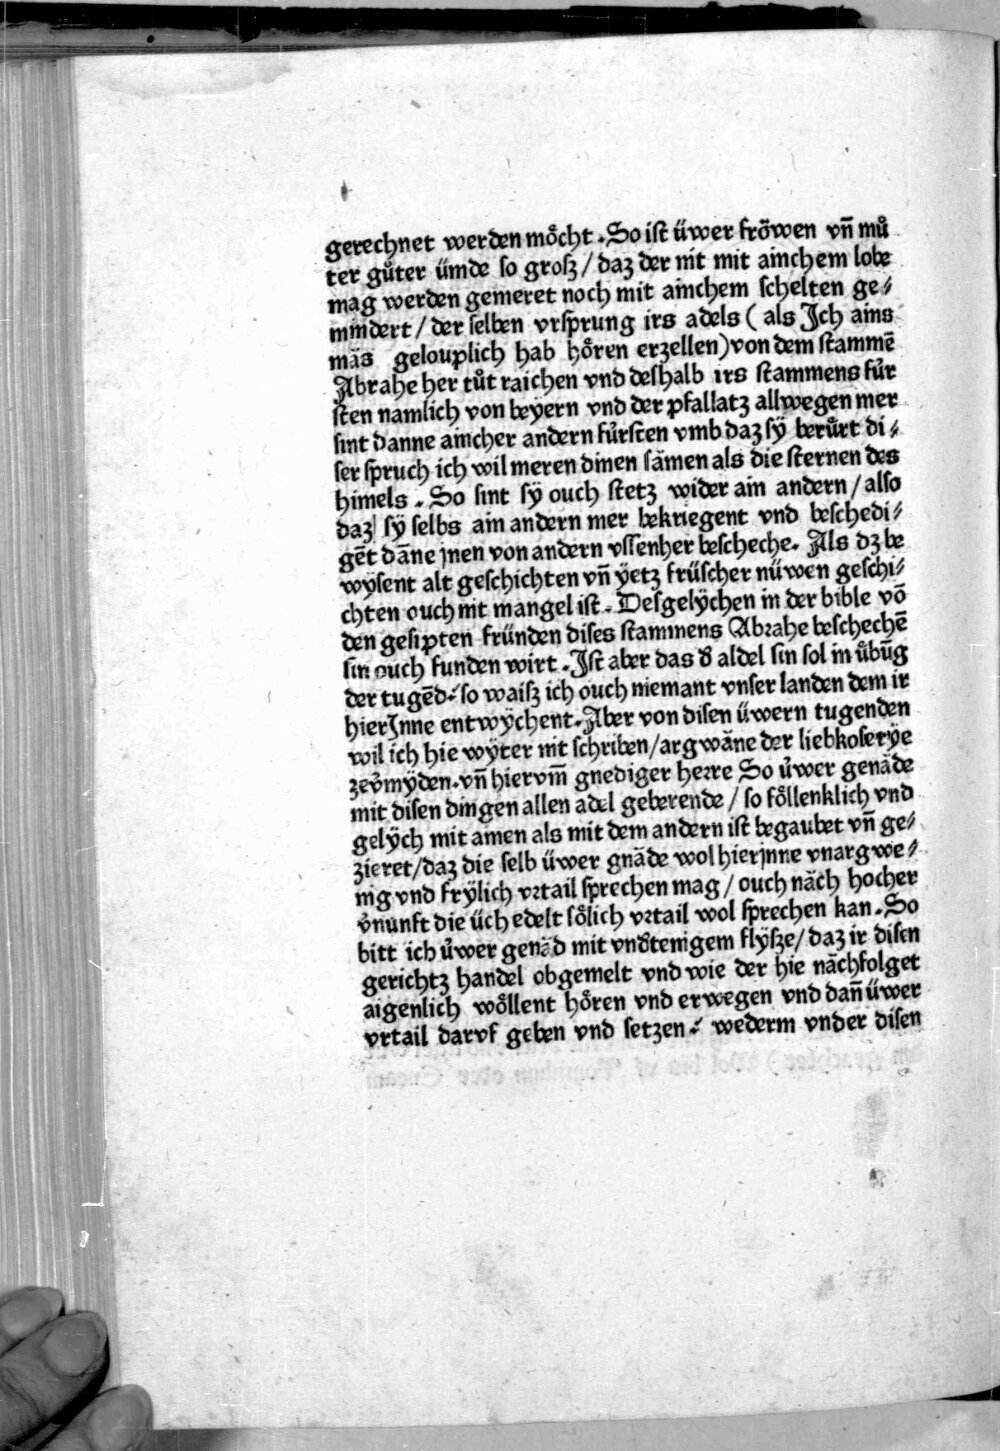 gerechnet werden moͤcht. So ist üwer froͤwen vn̄ muͦ
ter guͦter ümde so grosz / daz der nit mit ainchem lobe
mag werden gemeret noch mit ainchem schelten ge⸗
mindert / der selben vrsprung irs adels ( als Jch ains
mäs gelouplich hab hoͤren erzellen) von dem stammē
Abrahe her tuͦt raichen vnd deshalb irs stammens fuͤr
sten namlich von beyern vnd der pfallatz allwegen mer
sint danne aincher andern fuͤrsten vmb daz sÿ beruͤrt di⸗
ser spruch ich wil meren dinen sämen als die sternen des
himels. So sint sÿ ouch stetz wider ain andern / also
daz sÿ selbs ain andern mer bekriegent vnd beschedi⸗
gēt dāne jnen von andern vssenher bescheche. Als dz be
wÿsent alt geschichten vn̄ ÿetz früscher nüwen geschi⸗
chten ouch nit mangel ist. Desgelÿchen in der bible vō
den gesipten fründen dises stammens Abrahe beschechē
sin ouch funden wirt. Jst aber das d̕ aldel sin sol in uͤbūg
der tugēd⸗ so waisz ich ouch niemant vnser landen dem ir
hierJnne entwÿchent. Aber von disen üwern tugenden
wil ich hie wÿter nit schriben / argwäne der liebkoserÿe
zev̕mÿden. vn̄ hiervm̄ gnediger herre So uͤwer genäde
mit disen dingen allen adel geberende / so foͤllenklich vnd
gelÿch mit ainen als mit dem andern ist begaubet vn̄ ge⸗
zieret / daz die selb üwer gnäde wol hierjnne vnargwe⸗
nig vnd frÿlich vrtail sprechen mag / ouch näch hocher
v̕nunft die üch edelt soͤlich vrtail wol sprechen kan. So
bitt ich uͤwer genäd mit vnd̕tenigem flÿsze / daz ir disen
gerichtz handel obgemelt vnd wie der hie nächfolget
aigenlich woͤllent hoͤren vnd erwegen vnd dan̄ üwer
vrtail darvf geben vnd setzen⸗ wederm vnder disen